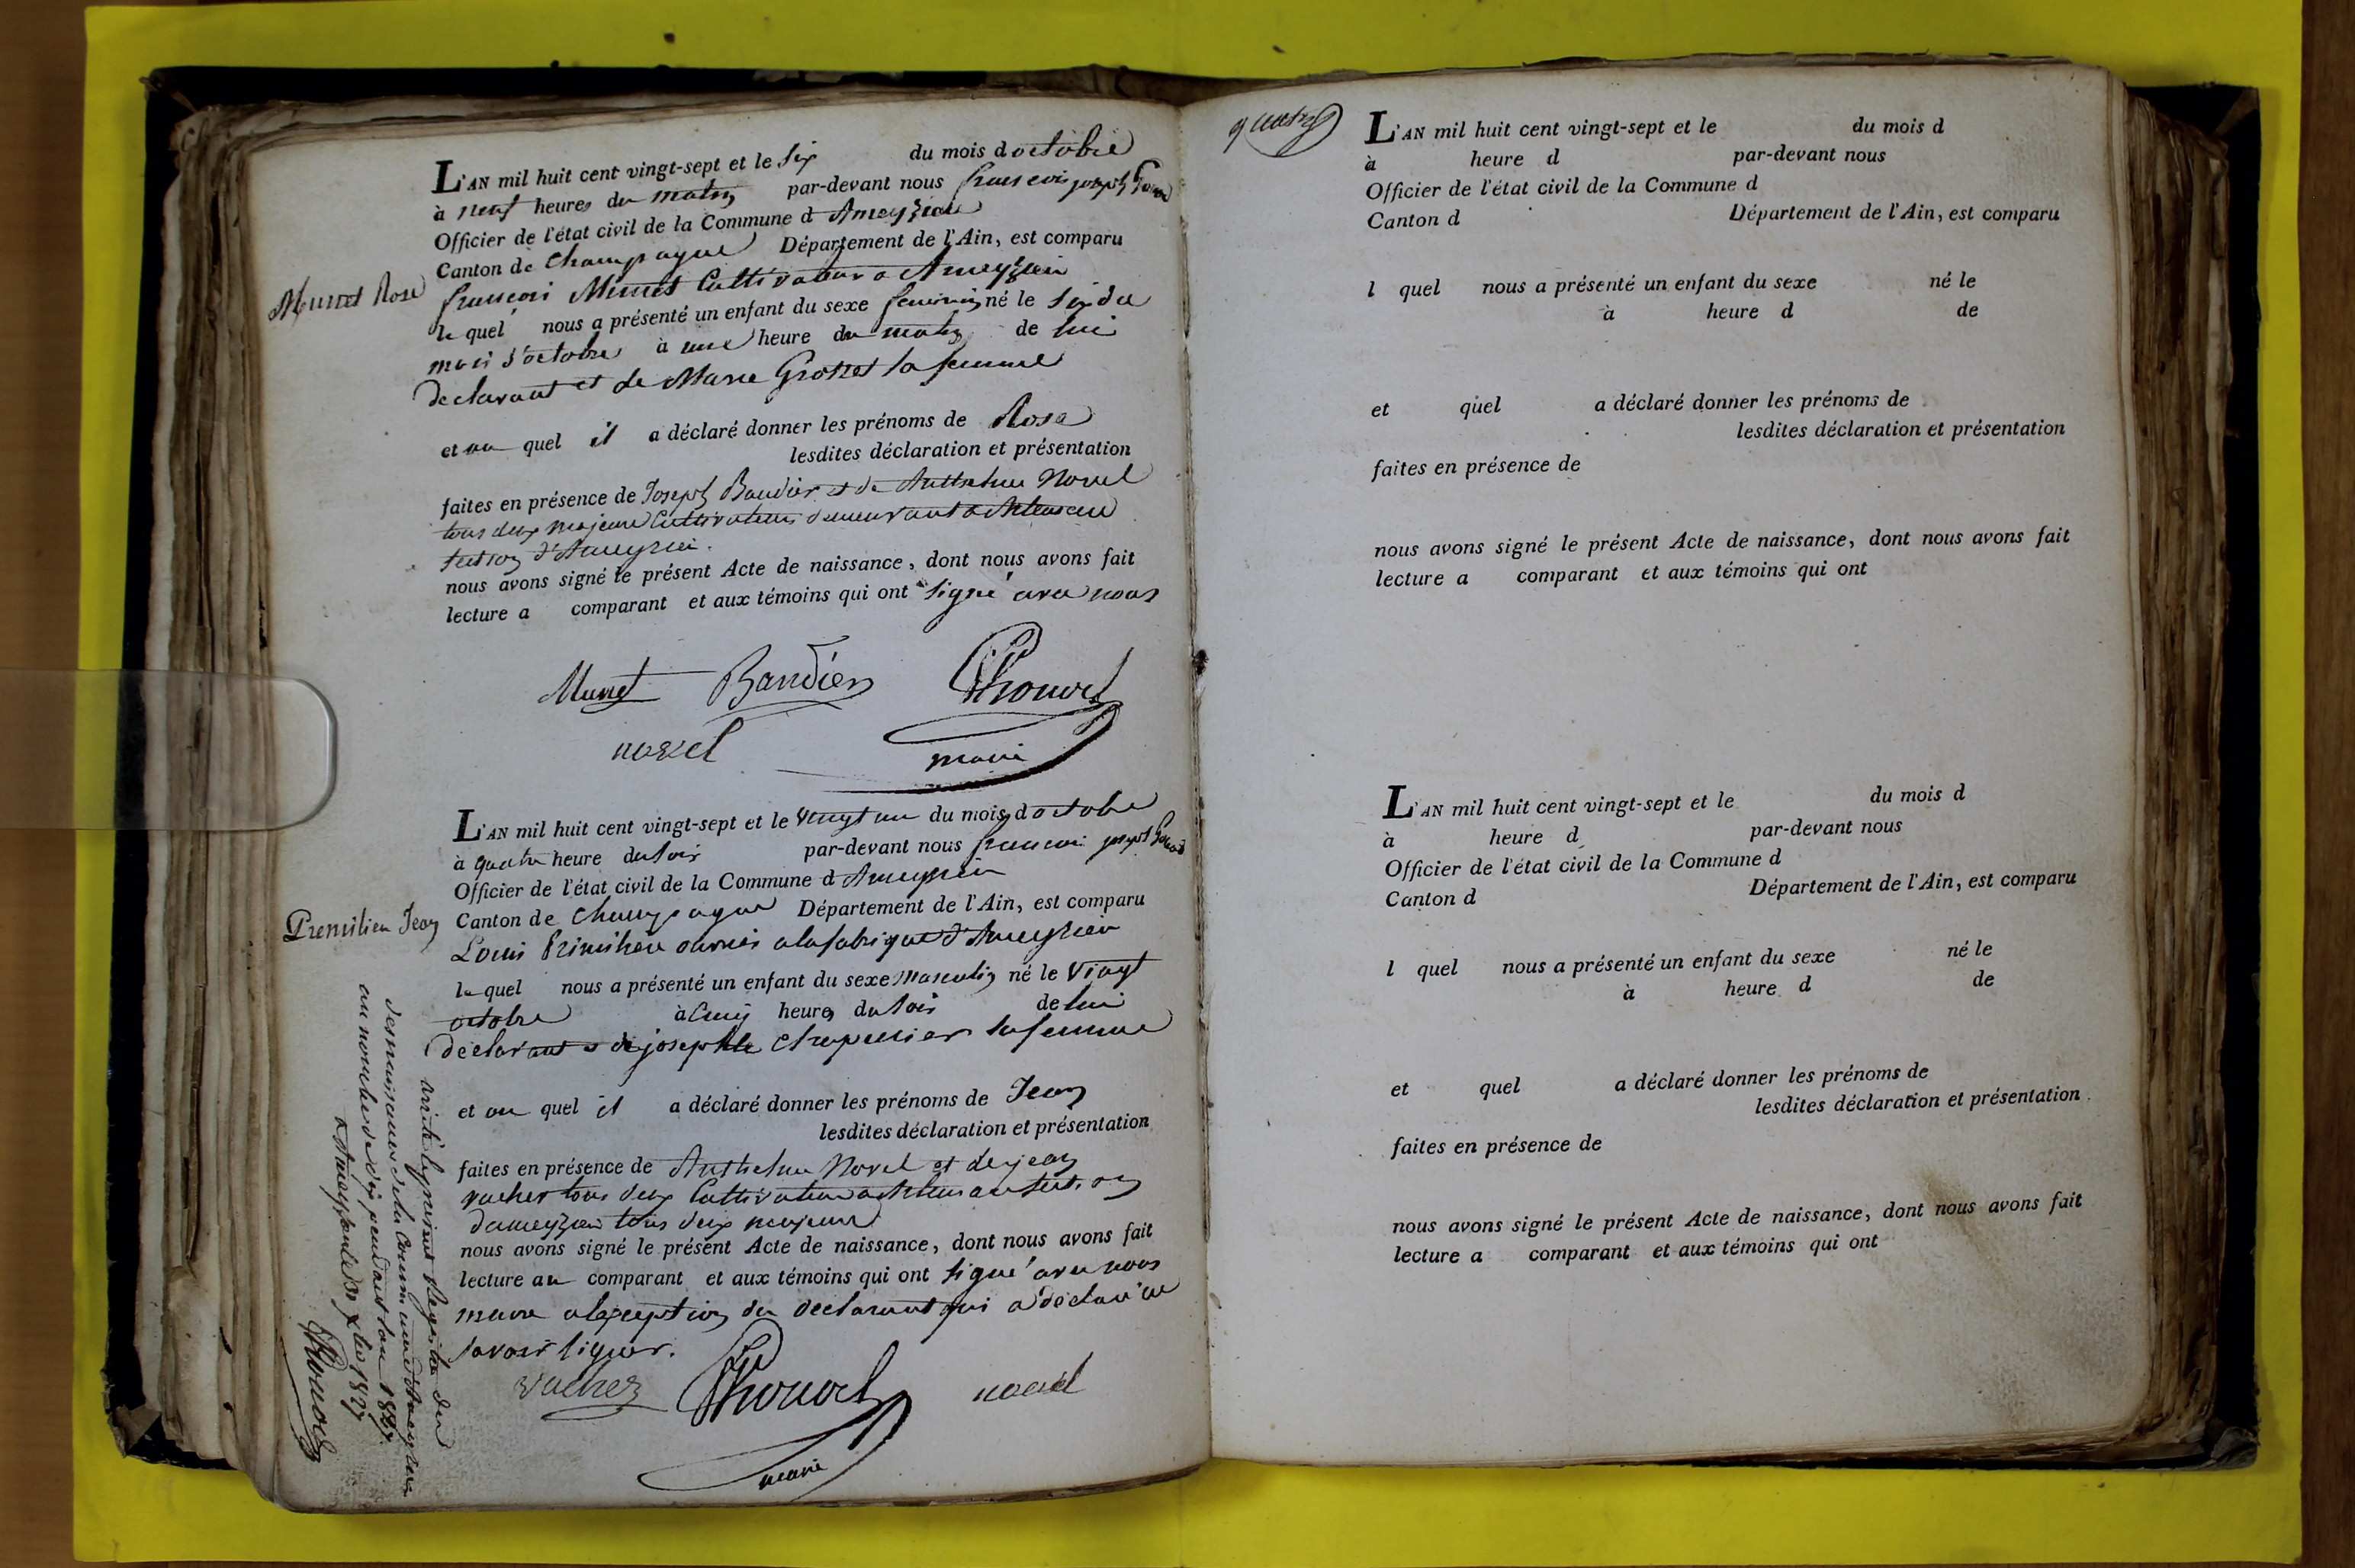 L'AN mil huit cent vingt-sept et le six du mois d octobre
à neuf heures du matin par-devant nous francois joseph
Officier de l'état civil de la Commune d Ameyzieu
Canton de Champagne Département de l'Ain, est comparu
Munet Rose
francois Munet Cultivateur a Ameyzieu
le quel nous a présenté un enfant du sexe feminin né le six du
mois d'octobre à une heure du matin de lui
declarant et de Marie Grosset sa femme
et au quel il a déclaré donner les prénoms de Rose
lesdites déclaration et présentation
faites en présence de Joseph Baudier et de Anthelme Novel
tous deux majeurs Cultivateurs demeurant a
d'Ameyzieu.
nous avons signé le présent Acte de naissance, dont nous avons fait
lecture a comparant et aux témoins qui ont signé avec nous
Munet Baudier
novel
maire
L'AN mil huit cent vingt-sept et le vingt un du mois d octobre
à quatre heure du soir par-devant nous francois joseph
Officier de l'état civil de la Commune d Ameyzieu
Premilieu Jean
Canton de Champagne Département de l'Ain, est comparu
Louis Primilieu ouvrier a la fabrique d'Ameyzieu
le quel nous a présenté un enfant du sexe masculin né le vingt
octobre à cinq heures du soir de lui
declarant et de josephte sa femme
et au quel il a déclaré donner les prénoms de Jean
lesdites déclaration et présentation
faites en présence de Anthelme Novel et de jean
vacher tous deux Cultivateurs a
d'ameyzieu tous deux majeurs
nous avons signé le présent Acte de naissance, dont nous avons fait
lecture au comparant et aux témoins qui ont signé avec nous
maire a lexception du declarant qui a déclaré ne
savoir signer.
vacher novel
maire
Arrêté le présent Registre des
naissances de la Commune d'Ameyzieu
au nombre de dix pendant lan 1827.
a Ameyzieu le 31 xbre 1827
quatre
L'AN mil huit cent vingt-sept et le du mois d
à heure d par-devant nous
Officier de l'état civil de la Commune d
Canton d Département de l'Ain, est comparu
l quel nous a présenté un enfant du sexe né le
à heure d de
et quel a déclaré donner les prénoms de
lesdites déclaration et présentation
faites en présence de
nous avons signé le présent Acte de naissance, dont nous avons fait
lecture a comparant et aux témoins qui ont
L'AN mil huit cent vingt-sept et le du mois d
à heure d par-devant nous
Officier de l'état civil de la Commune d
Canton d Département de l'Ain, est comparu
l quel nous a présenté un enfant du sexe né le
à heure d de
et quel a déclaré donner les prénoms de
lesdites déclaration et présentation
faites en présence de
nous avons signé le présent Acte de naissance, dont nous avons fait
lecture a comparant et aux témoins qui ont